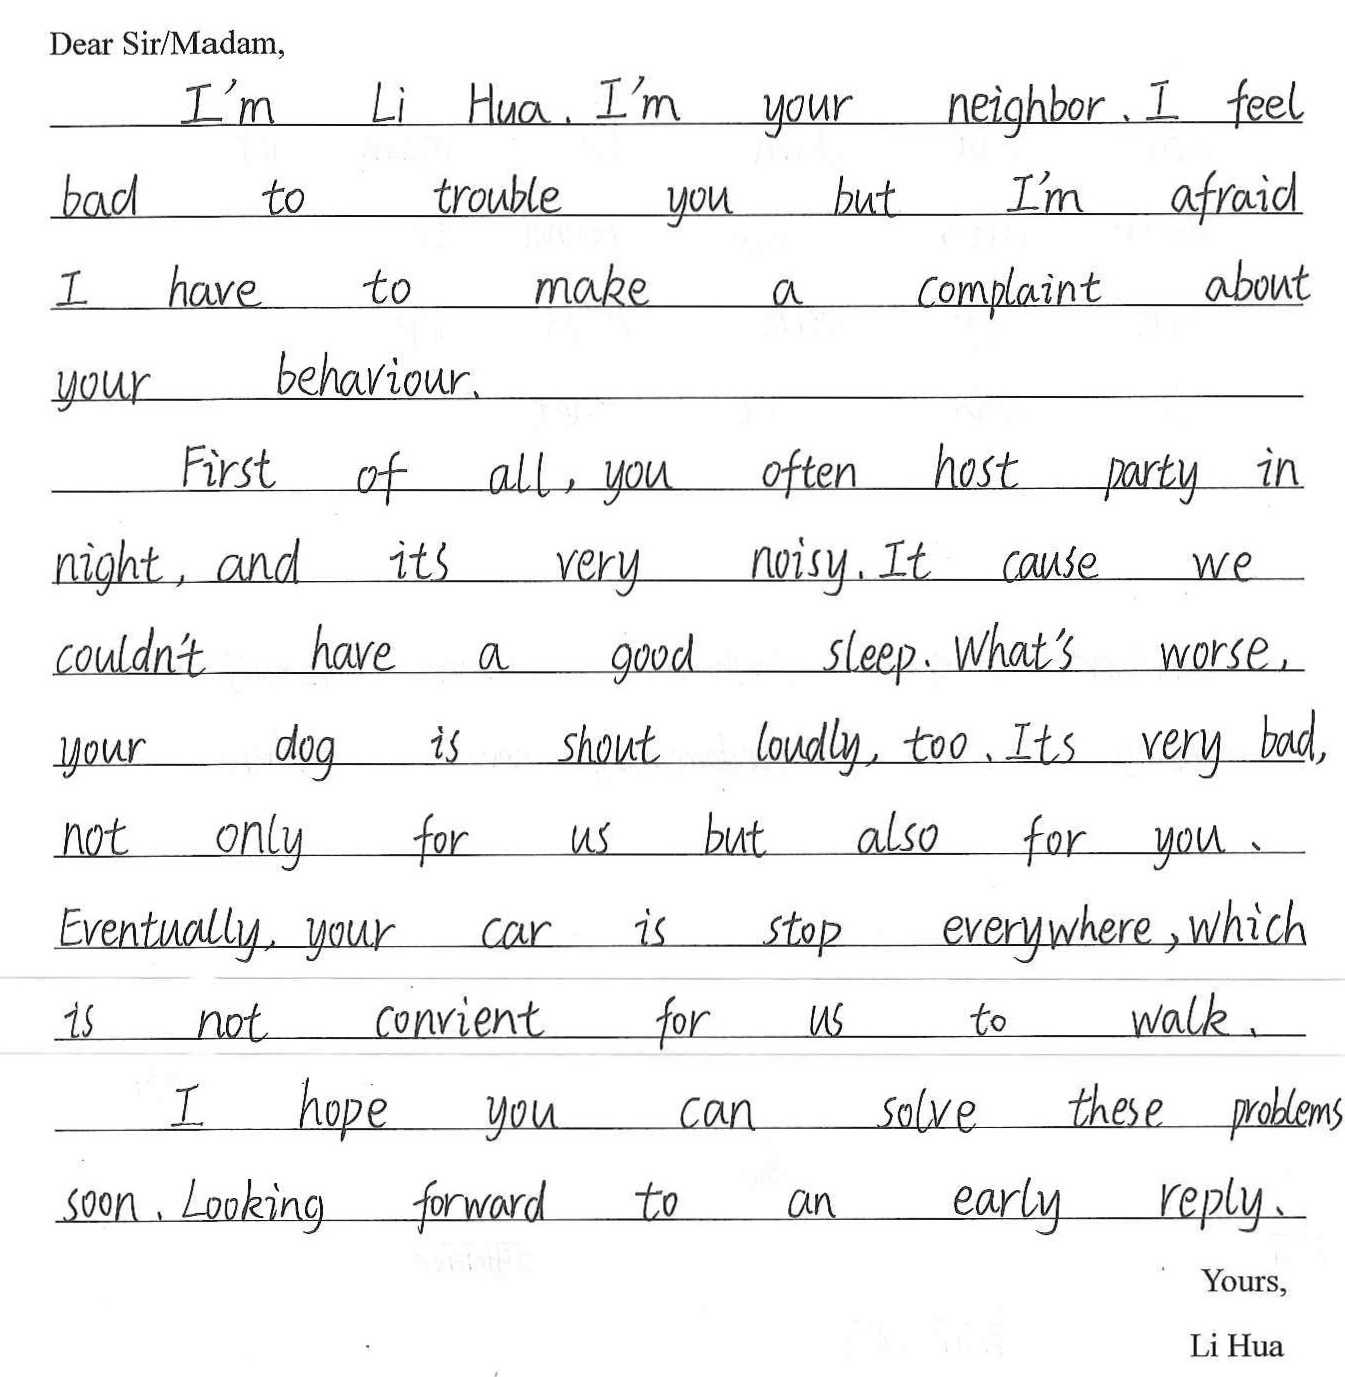 Dear Sir/Madam,
I'm Li Hua. I'm your neighbor. I feel
bad to trouble you but I'm afraid
I have to make a complaint about
your behaviour.
First of all, you often host party in
night, and its very noisy. It cause we
couldn't have a good sleep. What's worse,
your dog is shout loudly, too. Its very bad,
not only for us but also for you.
Eventually, your car is stop everywhere, which
is not convient for us to walk.
I hope you can solve these problems
soon. Looking forward to an early reply.
Yours,
Li Hua